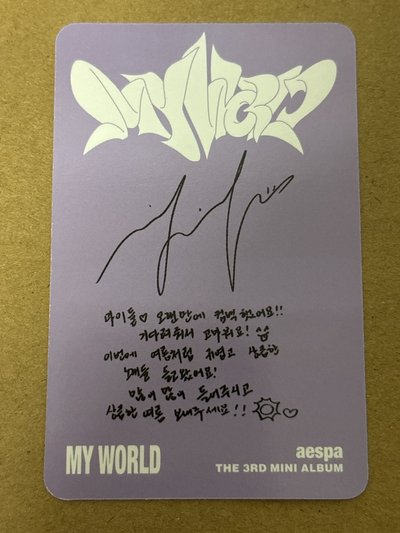 MY WORLD
마이들♡ 오랜만에 컴백했어요!!
기다려줘서 고마워요!
이번에 여름처럼 귀엽고 상큼한
노래들 들고왔어요!
많이 많이 들어주시고
상큼한 여름 보내주세요!!
MY WORLD
aespa
THE 3RD MINI ALBUM